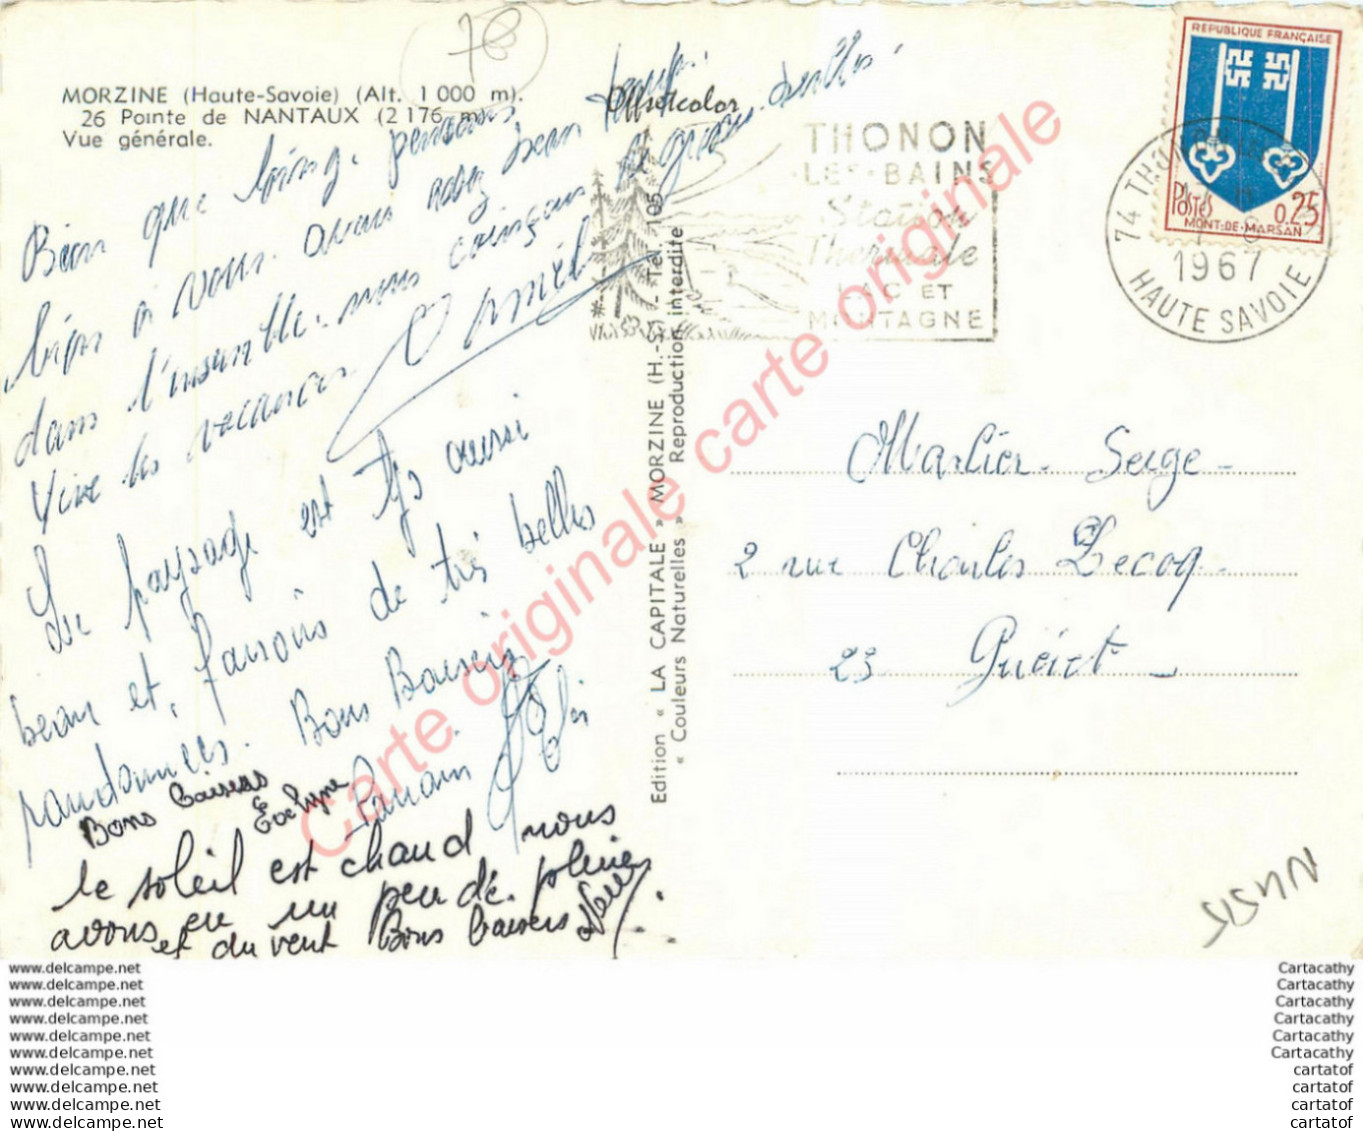 78
MORZINE (Haute-Savoie) (Alt. 1 000 m).
26 Pointe de NANTAUX (2 176 m).
Vue générale.
Bien que loing, pensons
bien à vous. avons assez beau temps.
dans l'ensemble. nous coinçons de grosses seilles.
Vive les vacances Daniel
Le paysage est tjs aussi
beau et, faisons de très belles
randonnées. Bons Baisers
Bons baisers
Evelyne
le soleil est chaud nous
avons eu un peu de pluie
et du vent Bons baisers
Edition « LA CAPITALE » MORZINE (H.-S.) - Tél. 105
« Couleurs Naturelles » Reproduction interdite
THONON
LES-BAINS
Station
Thermale
LAC ET
MONTAGNE
74 THONON
1967
HAUTE SAVOIE
REPUBLIQUE FRANÇAISE
Postes 0.25
MONT-DE-MARSAN
Marlier Serge
2 rue Charles Lecoq
23 Guéret
Carte originale carte originale carte originale
www.delcampe.net
www.delcampe.net
www.delcampe.net
www.delcampe.net
www.delcampe.net
www.delcampe.net
www.delcampe.net
www.delcampe.net
www.delcampe.net
www.delcampe.net
Cartacathy
Cartacathy
Cartacathy
Cartacathy
Cartacathy
Cartacathy
cartatof
cartatof
cartatof
cartatof